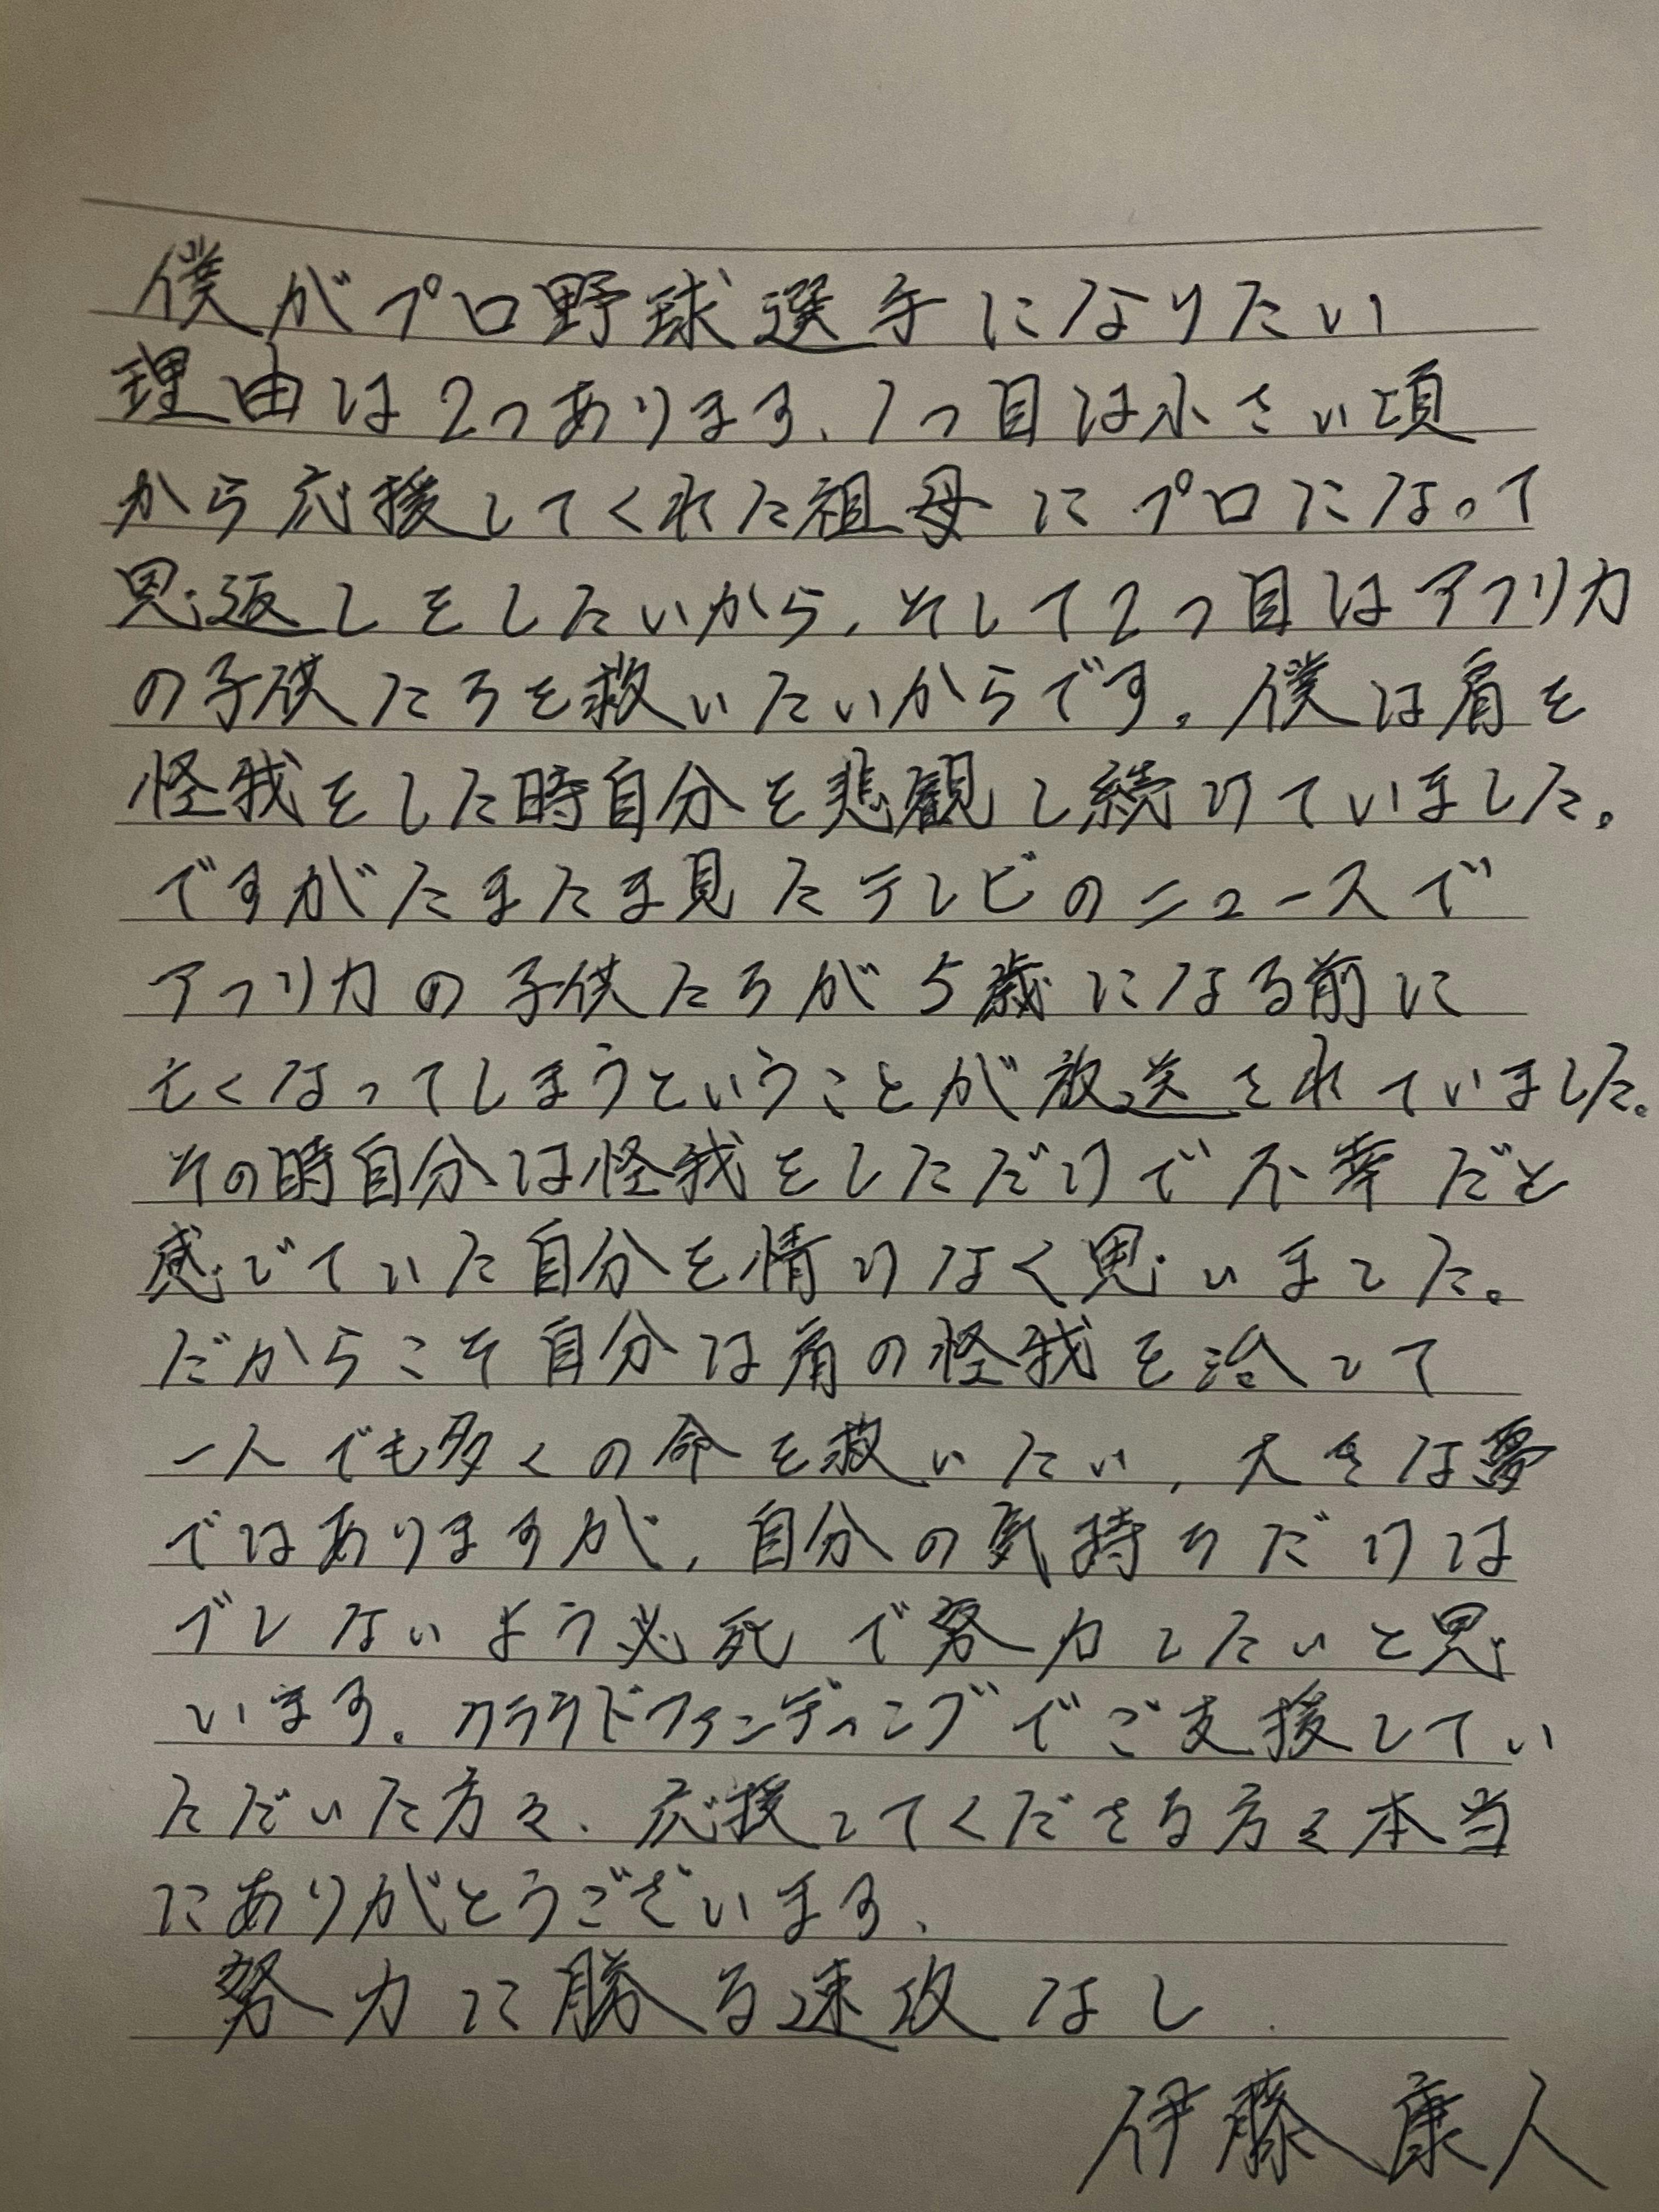 僕がプロ野球選手になりたい
理由は2つあります、1つ目は小さい頃
から応援してくれた祖母にプロになって
恩返しをしたいから、そして2つ目はアフリカ
の子供たちを救いたいからです。僕は肩を
怪我をした時自分を悲観し続けていました。
ですがたまたま見たテレビのニュースで
アフリカの子供たちが5歳になる前に
亡くなってしまうということが放送されていました。
その時自分は怪我をしただけで不幸だと
感じていた自分を情けなく思いました。
だからこそ自分は肩の怪我を治して
一人でも多くの命を救いたい、大きな夢
ではありますが、自分の気持ちだけは
ブレないよう必死で努力したいと思
います。クラウドファンディングでご支援してい
ただいた方々、応援してくださる方々本当
にありがとうございます、
努力に勝る速攻なし
伊藤康人